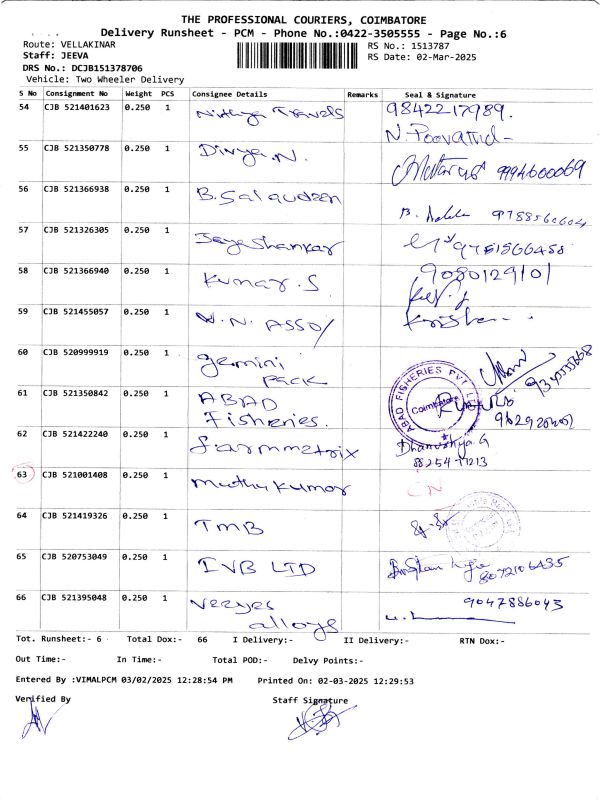 THE PROFESSIONAL COURIERS, COIMBATORE
Delivery Runsheet - PCM - Phone No.:0422-3505555 - Page No.:6
Route: VELLAKINAR
RS No.: 1513787
Staff: JEEVA
RS Date: 02-Mar-2025
DRS No.: DCJB151378706
Vehicle: Two Wheeler Delivery
S No Consignment No Weight PCS Consignee Details Remarks Seal & Signature
54 CJB 521401623 0.250 1 Nithya Travels 9842217989.
55 CJB 521350778 0.250 1 Divya.N.
56 CJB 521366938 0.250 1 B.Salaudeen
57 CJB 521326305 0.250 1 Jayashankar
58 CJB 521366940 0.250 1 Kumar.S 9080129101
59 CJB 521455057 0.250 1
60 CJB 520999919 0.250 1 Gemini
Pack
61 CJB 521350842 0.250 1 ABAD
Fisheries.
ABAD FISHERIES PVT L
Coimbatore
62 CJB 521422240 0.250 1 Farmmetrix Dhanushya G
63 CJB 521001408 0.250 1 Muthukumar
64 CJB 521419326 0.250 1 TMB
65 CJB 520753049 0.250 1 IVB LTD 8072106435
66 CJB 521395048 0.250 1 Veeyes 9047886043
alloys
Tot. Runsheet:- 6 Total Dox:- 66 I Delivery:- II Delivery:- RTN Dox:-
Out Time:- In Time:- Total POD:- Delvy Points:-
Entered By :VIMALPCM 03/02/2025 12:28:54 PM Printed On: 02-03-2025 12:29:53
Verified By Staff Signature